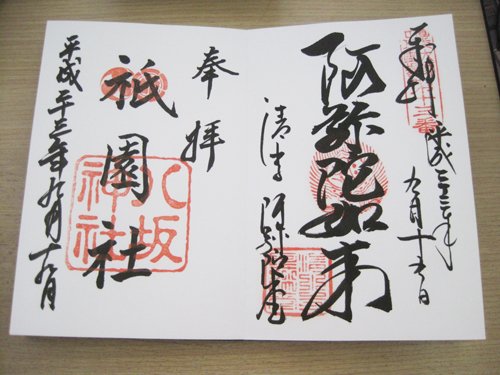 奉拝
平成二十三年
九月十 日
阿弥陀如来
清水寺 阿弥陀堂
奉拝
祇園社
八坂
神社
平成二十三年九月十 日